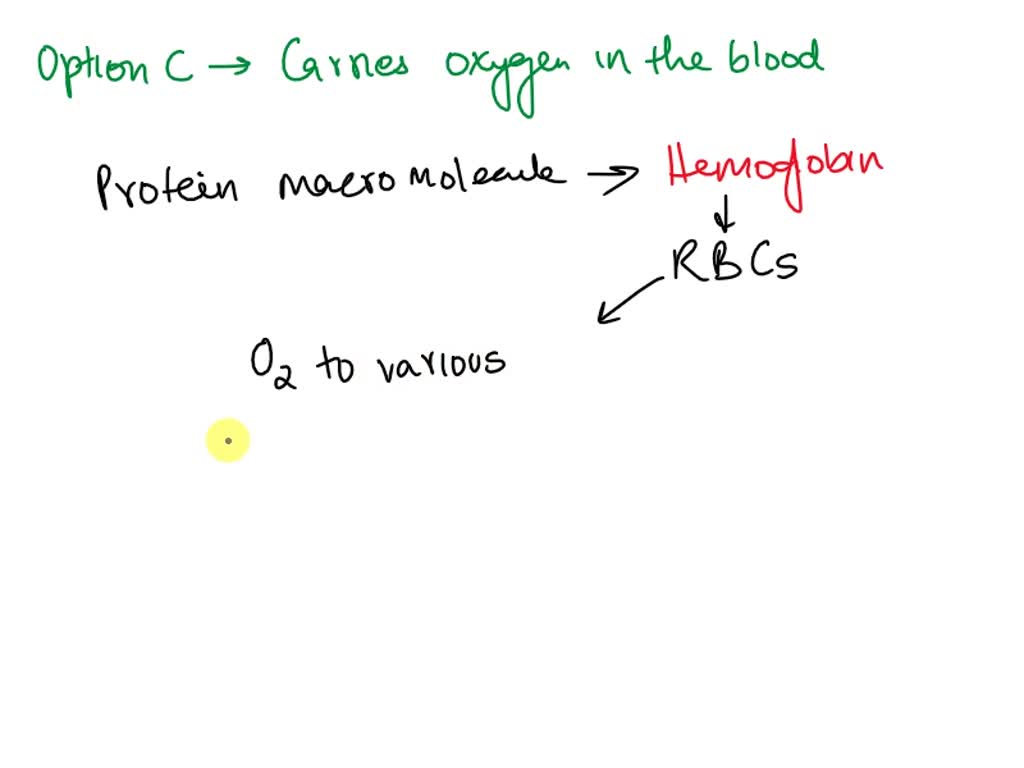 Option C → Carries oxygen in the blood
Protein macromolecule → Hemoglobin
↓
RBCs
O₂ to various